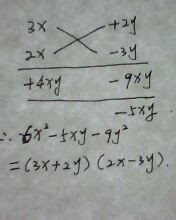 3x +2y
2x -3y
+4xy -9xy
-5xy
∴ 6x²-5xy-9y²
=(3x+2y)(2x-3y).